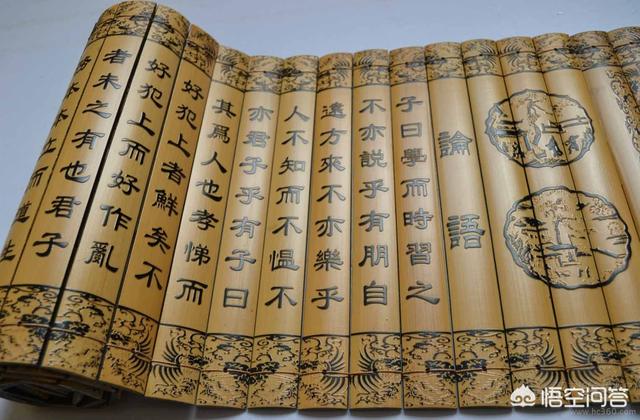 論語
子曰學而時習之
不亦說乎有朋自
遠方來不亦樂乎
人不知而不慍不
亦君子乎有子曰
其爲人也孝悌而
好犯上者鮮矣不
好犯上而好作亂
者未之有也君子
本立而道生
悟空问答
www.hc360.com